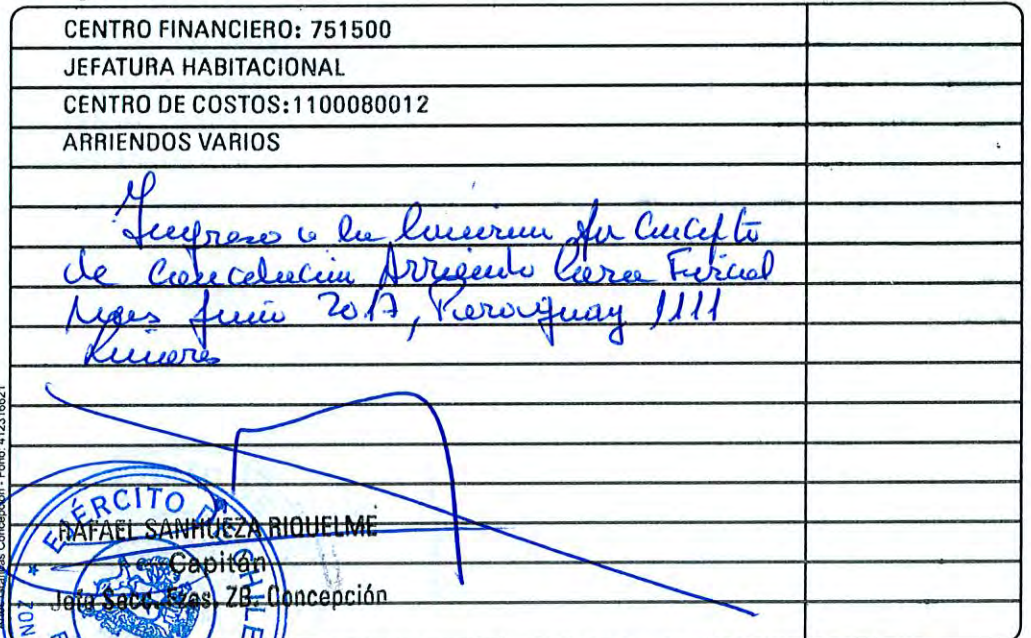 CENTRO FINANCIERO: 751500
JEFATURA HABITACIONAL
CENTRO DE COSTOS:1100080012
ARRIENDOS VARIOS
Ingreso a la por Concepto
de Cancelación Arriendo Casa Fiscal
Mes Junio 2017, Paraguay 1111
Linares
EJÉRCITO DE CHILE
RAFAEL SANHUEZA RIQUELME
Capitán
Jefe Secc. Fzas. ZB. Concepción
Concepción - Fono: 412316621